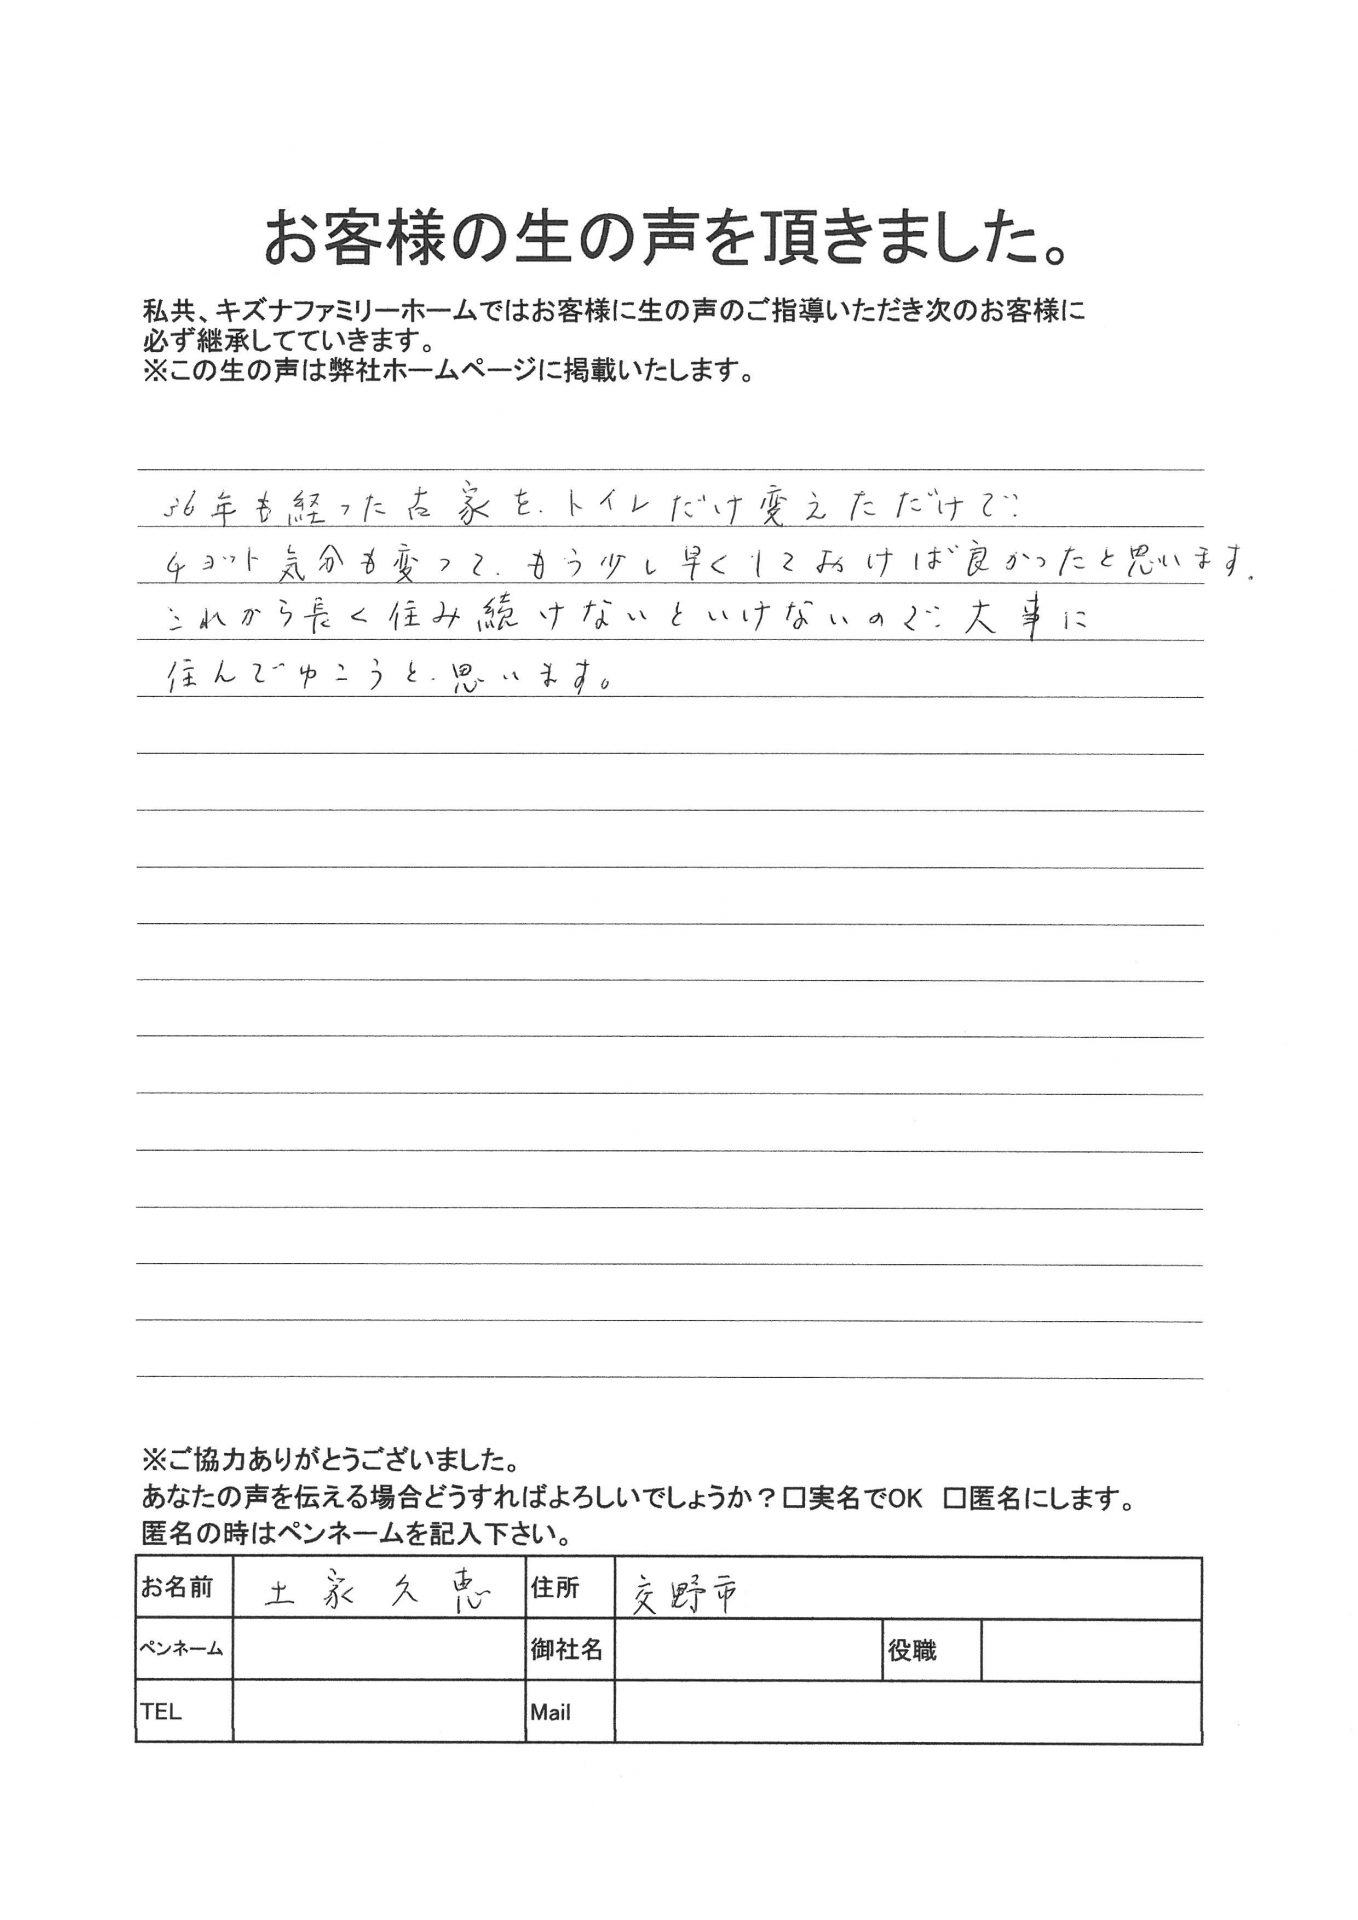 お客様の生の声を頂きました。
私共、キズナファミリーホームではお客様に生の声のご指導いただき次のお客様に
必ず継承してていきます。
※この生の声は弊社ホームページに掲載いたします。
36年も経った古家を、トイレだけ変えただけで、
チョット気分も変って、もう少し早くしておけば良かったと思います。
これから長く住み続けないといけないので、大事に
住んでゆこうと、思います。
※ご協力ありがとうございました。
あなたの声を伝える場合どうすればよろしいでしょうか？□実名でOK □匿名にします。
匿名の時はペンネームを記入下さい。
お名前 土家久恵 住所 交野市
ペンネーム 御社名 役職
TEL Mail